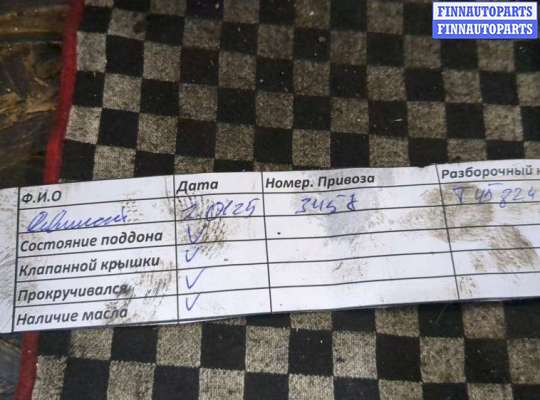 FINNAUTOPARTS
FINNAUTOPARTS
Ф.И.О Дата Номер. Привоза Разборочный
3458 Т45824
Состояние поддона ✓
Клапанной крышки ✓
Прокручивался ✓
Наличие масла ✓